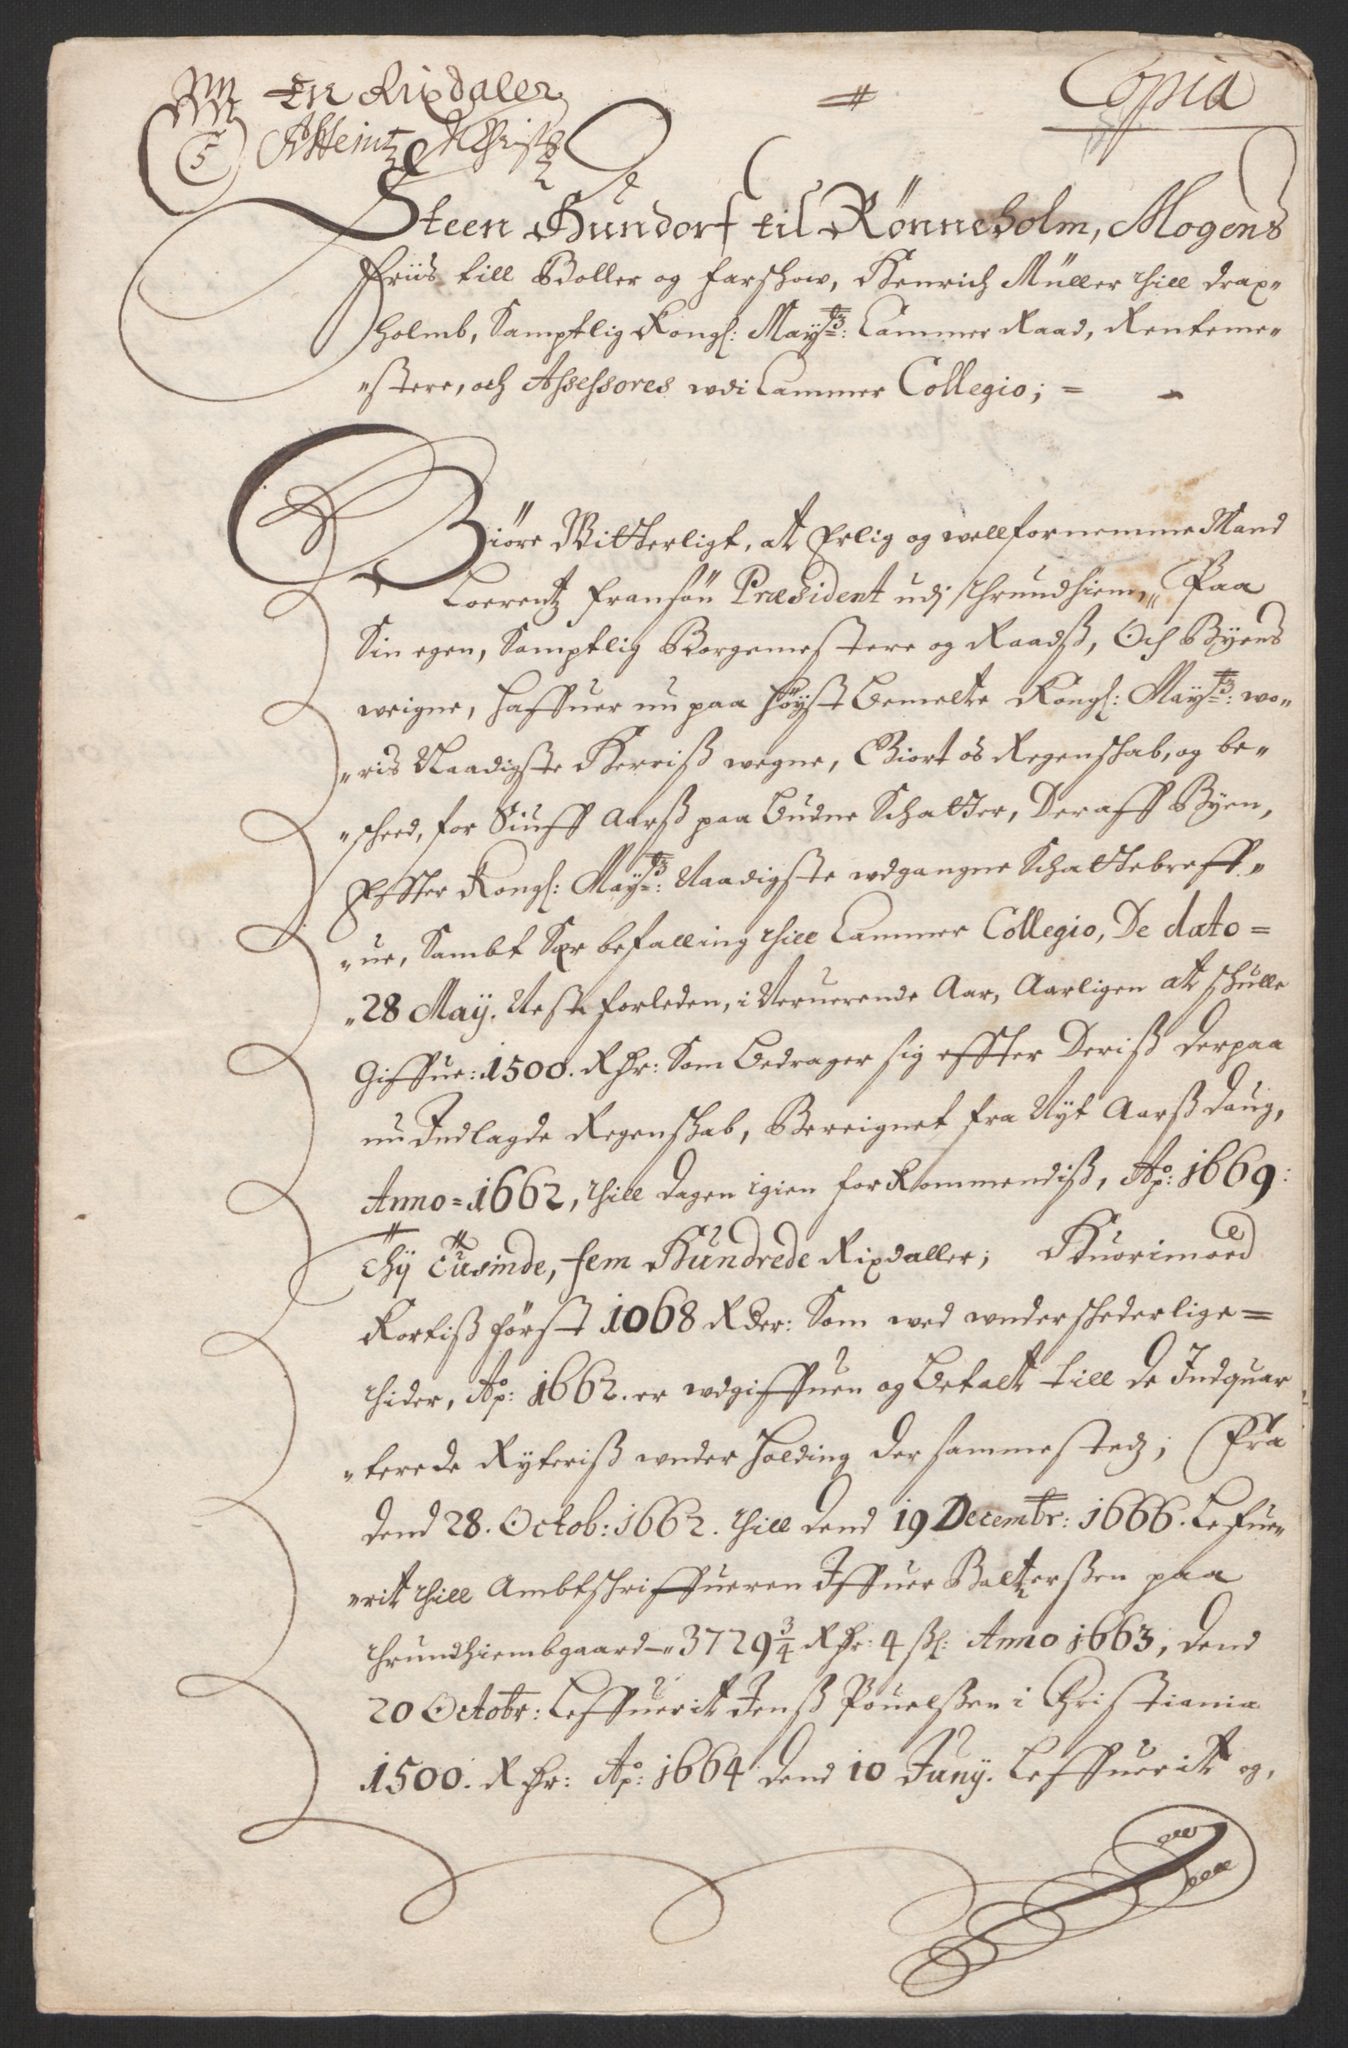 En Rixdaler
Copia
5
Steen Hundorf til Rønneholm, Mogens
Friis till Boller og Farschow, Henrich Müller thill Drax„
holmb, Samptlig Kongl: Mayts: Cammer Raad, Renteme„
„stere, och Assessores udi Cammer Collegio; =
Giöre Witterligt, at Erlig og wellfornemme Mand
Lorentz Fransön Præsident udj Thrundhiem, Paa
Sin egen, Samptlig Borgemestere og Raadß, Och Byens
weigne, haffuer nu paa höyst bemelte Kongl: Mayts: wo„
„ris Naadigste Herriß wegne, Giort os Regenschab, og be„
„scheed, for Siuff Aarß paa budne Schatter, Deraff Byen,
Effter Kongl: Mayts: Naadigste udgangne Schattebreff„
„ue, Sambt Sær befalling thill Cammer Collegio, De dato =
„28 May. Nest forleden, i Neruerende Aar, Aarligen at schulle
Giffue: 1500. Rdr: Som bedrager sig effter Deriß derpaa
nu Indlagde Regenschab, Bereignet fra Nyt Aarß daug,
Anno = 1662, thill dagen igien forkommendiß, Ao: 1669:
Thj Tusinde, fem Hundrede Rixdaller; Huorimoed
Kortiß först 1068 Rdr: Som wed underschedelige =
thider, Ao: 1662. er udgiffuen og betalt till de Indquar
„terede Ryteriß underholding der sammestedz; Fra
dend 28. Octob: 1662. thill dend 19 Decembr: 1666. Lefue„
„rit thill Ambtschriffueren Iffuer Baltzerßen paa
Thrundhiembgaard - 3729 3/4 Rdr: 4 ßl: Anno 1663, dend
20 Octobr: Leffuerit Jenß Pouelßen i Christiania
1500. Rdr: Ao: 1664 dend 10 Juny. Leffuerit og,